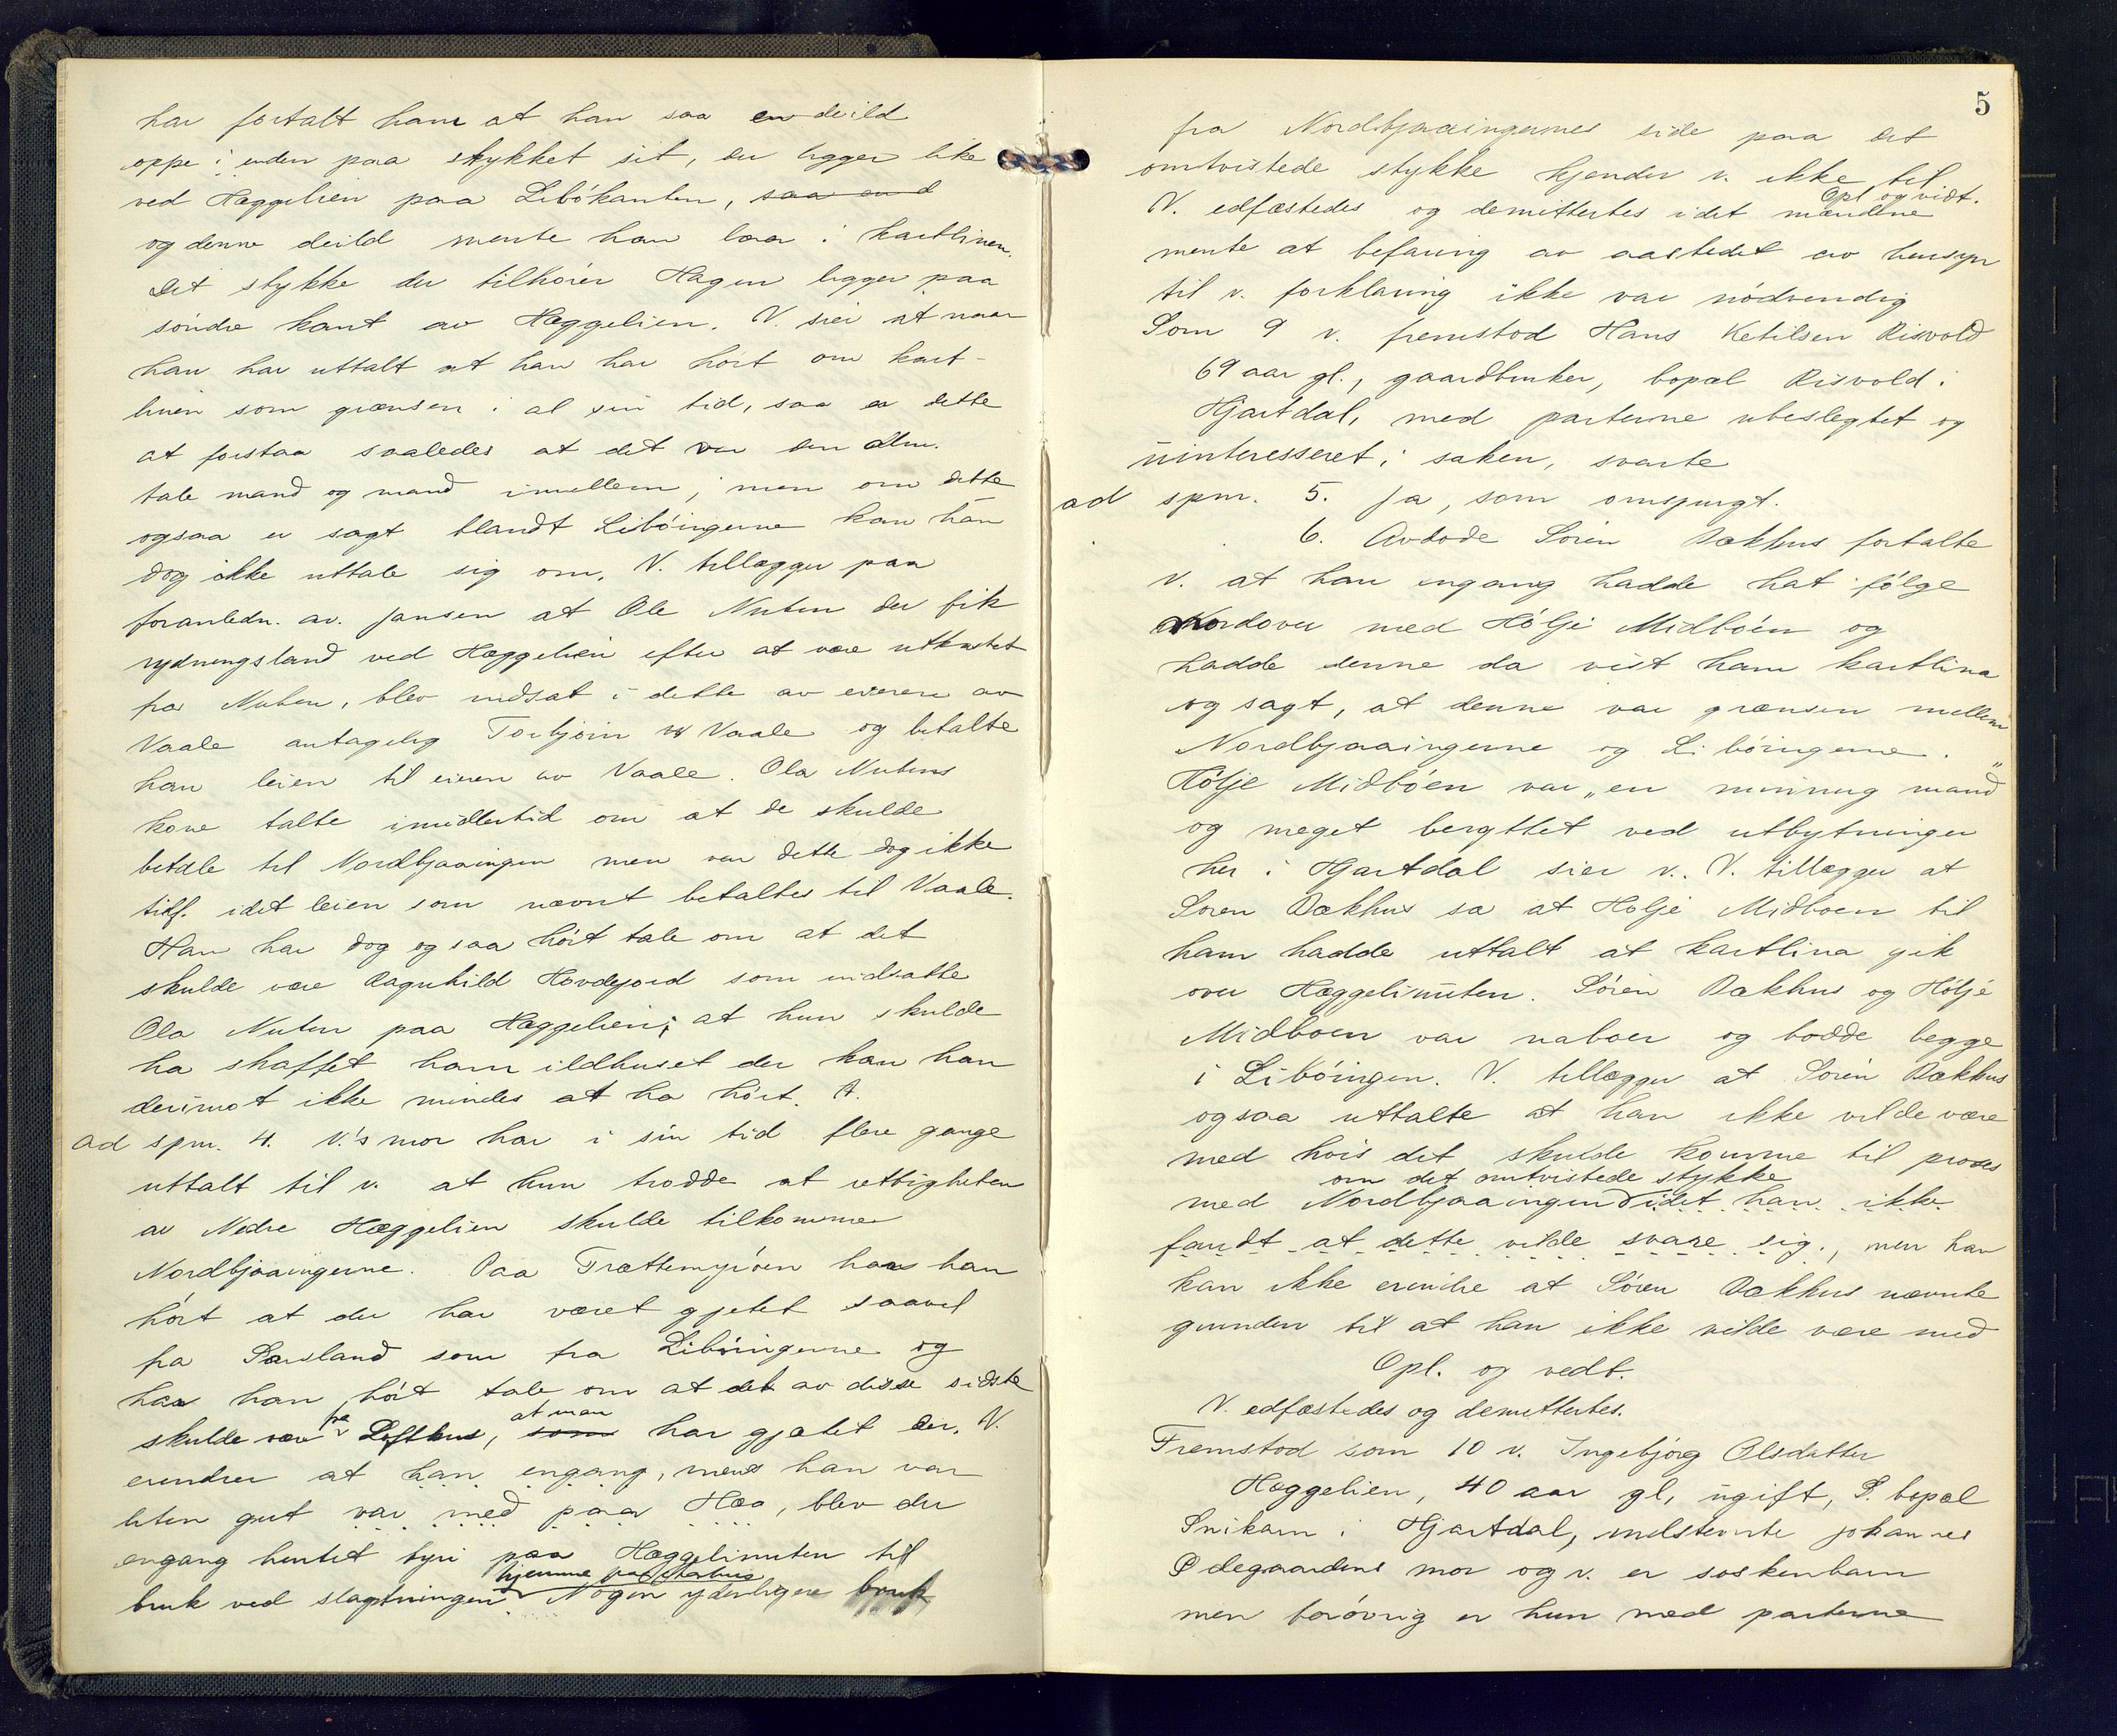 har fortalt ham at han saa en deild
oppe i enden paa stykket sit, der ligger like
ved Hæggelien paa Libökanten, saa end
og denne deild mente han laa i kartlinen.
Det stykke der tilhörer Hagen ligger paa
söndre kant av Hæggelien. V. sier at naar
han har uttalt at han har hört om kart-
linen som grænsen i al sin tid, saa er dette
at forstaa saaledes at det var den alm.
tale mand og mand imellem, men om dette
ogsaa er sagt blandt Liböingerne kan han
dog ikke uttale sig om. V. tillægger paa
foranledn. av. Jansen at Ole Nuten der fik
rydningsland ved Hæggelien efter at være utkastet
fra Nuten, blev indsat i dette av eieren av
Vaale antagelig Torbjörn Vaale og betalte
han leien til eieren av Vaale. Ola Nutens
kone talte imidlertid om at de skulde
betale til Nordbjaaingen men var dette dog ikke
tilf. idet leien som nævnt betaltes til Vaale.
Han har dog ogsaa hört tale om at det
skulde være Ragnhild Hovdejord som indsatte
Ola Nuten paa Hæggelien; at hun skulde
ha skaffet ham ildhuset der kan han
derimot ikke mindes at ha hört.
ad spm. 4. V.'s mor har i sin tid flere gange
uttalt til v. at hun trodde at rettigheten
av Nedre Hæggelien skulde tilkomme
Nordbjaaingerne. Paa Trættemyröen har han
hört at der har været gjetet saavel
fra Sauland som fra Liböingerne og
har han hört tale om at det av disse sidste
skulde være fra Lofthus, som at man har gjætet der. V.
erindrer at han engang, mens han var
liten gut var med paa Hæa, blev der
engang hentet tyri paa Hæggelinuten til
bruk ved slagtningen hjemme paa Nogen yderligere bruk
5
fra Nordbjaaingernes side paa det
omtvistede stykke kjender v. ikke til
Opl og vidt.
V. edfæstedes og demittertes idet mændene
mente at befaring av aastedet av hensyn
til v. forklaring ikke var nödvendig
Som 9 v. fremstod Hans Ketilsen Risvold
69 aar gl., gaardbruker, bopæl Risvold i
Hjartdal, med parterne ubeslegtet og
uinteresseret i saken, svarte
ad spm. 5. Ja, som omspurgt.
6. Avdöde Sören Bækhus fortalte
v. at han engang hadde hat fölge
Nordover med Hölje Midböen og
hadde denne da vist ham kartlina
og sagt, at denne var grænsen mellem
Nordbjaaingerne og Liböingerne.
Hölje Midböen var „en minnug mand"
og meget benyttet ved utbytninger
her i Hjartdal sier v. V. tillægger at
Sören Bækhus sa at Hölje Midboen til
ham hadde uttalt at kartlina gik
over Hæggelinuten. Sören Bækhus og Hölje
Midboen var naboer og bodde begge
i Liböingen. V. tillægger at Sören Bækhus
ogsaa uttalte at han ikke vilde være
med hvis det skulde komme til proces
om det omtvistede stykke
med Nordbjaaingen idet han ikke
fandt at dette vilde svare sig., men han
kan ikke erindre at Sören Bækhus nævnte
grunden til at han ikke vilde være med
Opl. og vedt.
V. edfæstedes og demittertes.
Fremstod som 10 v. Ingebjörg Olsdatter
Hæggelien, 40 aar gl, ugift, P. bopæl
Snikarn i Hjartdal, indstevnte Johannes
Ödegaardens mor og v. er söskenbarn
men forövrig er hun med parterne